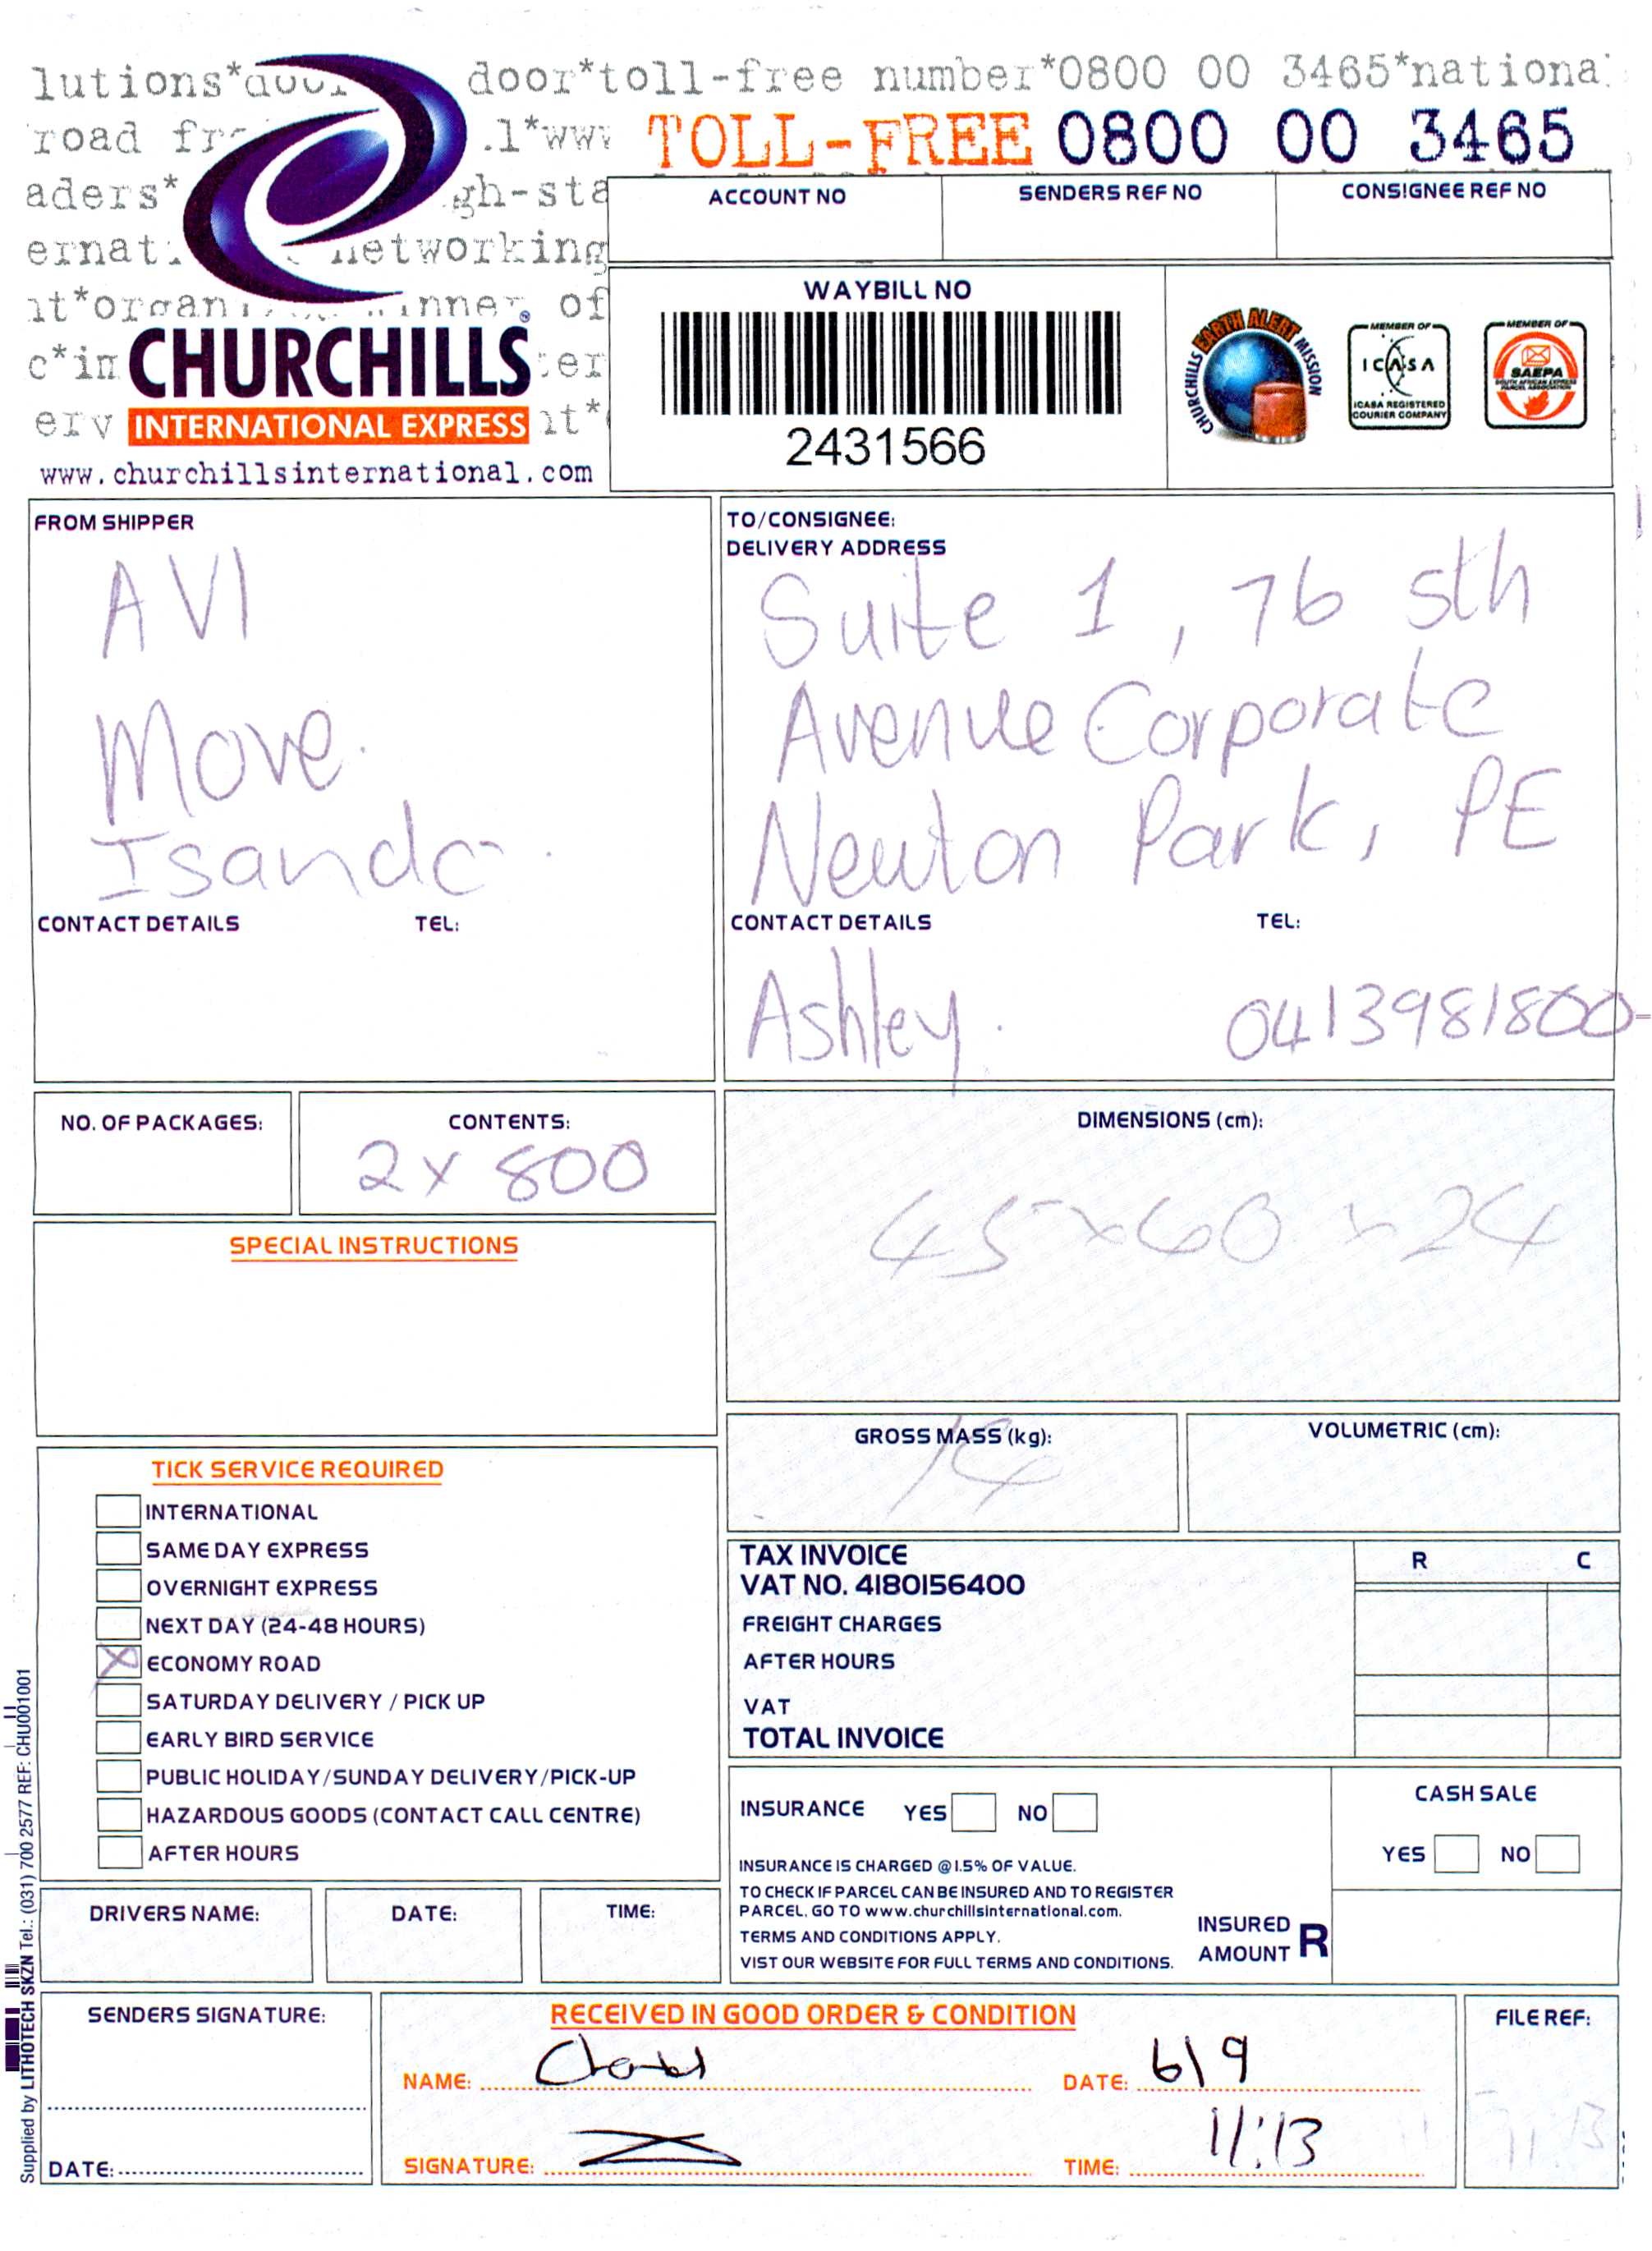 lutions*door door*toll-free number*0800 00 3465*national
road fr .l*www TOLL-FREE 0800 00 3465
aders* gh-sta
ACCOUNT NO SENDERS REF NO CONSIGNEE REF NO
ernat networking
it*organ inner of
c*im ter
erv nt*
CHURCHILLS
INTERNATIONAL EXPRESS
www.churchillsinternational.com
WAYBILL NO
2431566
CHURCHILLS EARTH ALERT MISSION
MEMBER OF
ICASA
ICASA REGISTERED
COURIER COMPANY
MEMBER OF
SAEPA
SOUTH AFRICAN EXPRESS
PARCEL ASSOCIATION
FROM SHIPPER
AVI
Move.
Isando
CONTACT DETAILS TEL:
TO/CONSIGNEE:
DELIVERY ADDRESS
Suite 1, 76 5th
Avenue Corporate
Newton Park, PE
CONTACT DETAILS TEL:
Ashley. 0413981800
NO. OF PACKAGES: CONTENTS:
2 x 800
DIMENSIONS (cm):
45 x 60 x 24
SPECIAL INSTRUCTIONS
GROSS MASS (kg): VOLUMETRIC (cm):
14
TICK SERVICE REQUIRED
INTERNATIONAL
SAME DAY EXPRESS
OVERNIGHT EXPRESS
NEXT DAY (24-48 HOURS)
X ECONOMY ROAD
SATURDAY DELIVERY / PICK UP
EARLY BIRD SERVICE
PUBLIC HOLIDAY/SUNDAY DELIVERY/PICK-UP
HAZARDOUS GOODS (CONTACT CALL CENTRE)
AFTER HOURS
TAX INVOICE R C
VAT NO. 4180156400
FREIGHT CHARGES
AFTER HOURS
VAT
TOTAL INVOICE
INSURANCE YES NO
INSURANCE IS CHARGED @ 1.5% OF VALUE.
TO CHECK IF PARCEL CAN BE INSURED AND TO REGISTER
PARCEL. GO TO www.churchillsinternational.com.
TERMS AND CONDITIONS APPLY.
VIST OUR WEBSITE FOR FULL TERMS AND CONDITIONS.
INSURED
AMOUNT R
CASH SALE
YES NO
DRIVERS NAME: DATE: TIME:
SENDERS SIGNATURE:
DATE:
RECEIVED IN GOOD ORDER & CONDITION
NAME: DATE: 6/9
SIGNATURE: TIME: 11:13
FILE REF:
11:13
Supplied by LITHOTECH SKZN Tel.: (031) 700 2577 REF: CHU001001